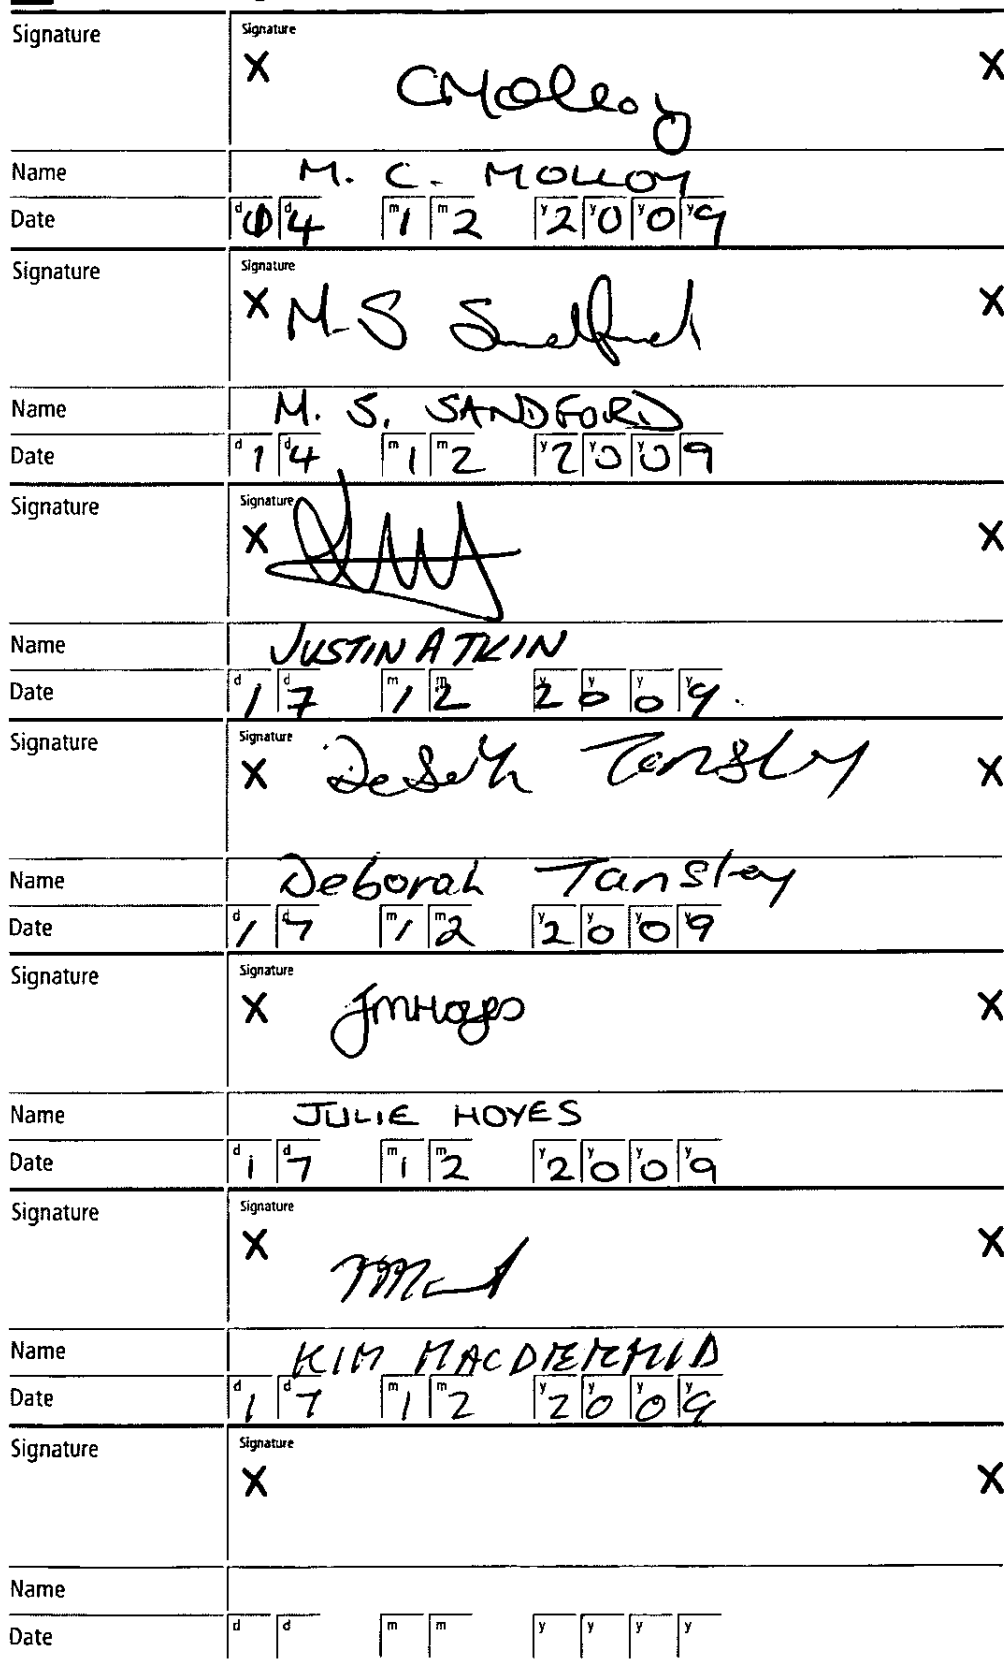 Signature Signature
X CMolloy X
Name M. C. MOLLOY
Date d d 4 m 1 m 2 y 2 y 0 y 0 y 9
Signature Signature
X M-S Sandford X
Name M. S. SANDFORD
Date d 1 d 4 m 1 m 2 y 2 y 0 y 0 y 9
Signature Signature
X X
Name JUSTIN ATKIN
Date d 1 d 7 m 1 m 2 y 2 y 0 y 0 y 9.
Signature Signature
X Deborah Tansley X
Name Deborah Tansley
Date d 1 d 7 m 1 m 2 y 2 y 0 y 0 y 9
Signature Signature
X JMHoyes X
Name JULIE HOYES
Date d 1 d 7 m 1 m 2 y 2 y 0 y 0 y 9
Signature Signature
X X
Name KIM MACDERMID
Date d 1 d 7 m 1 m 2 y 2 y 0 y 0 y 9
Signature Signature
X X
Name
Date d d m m y y y y